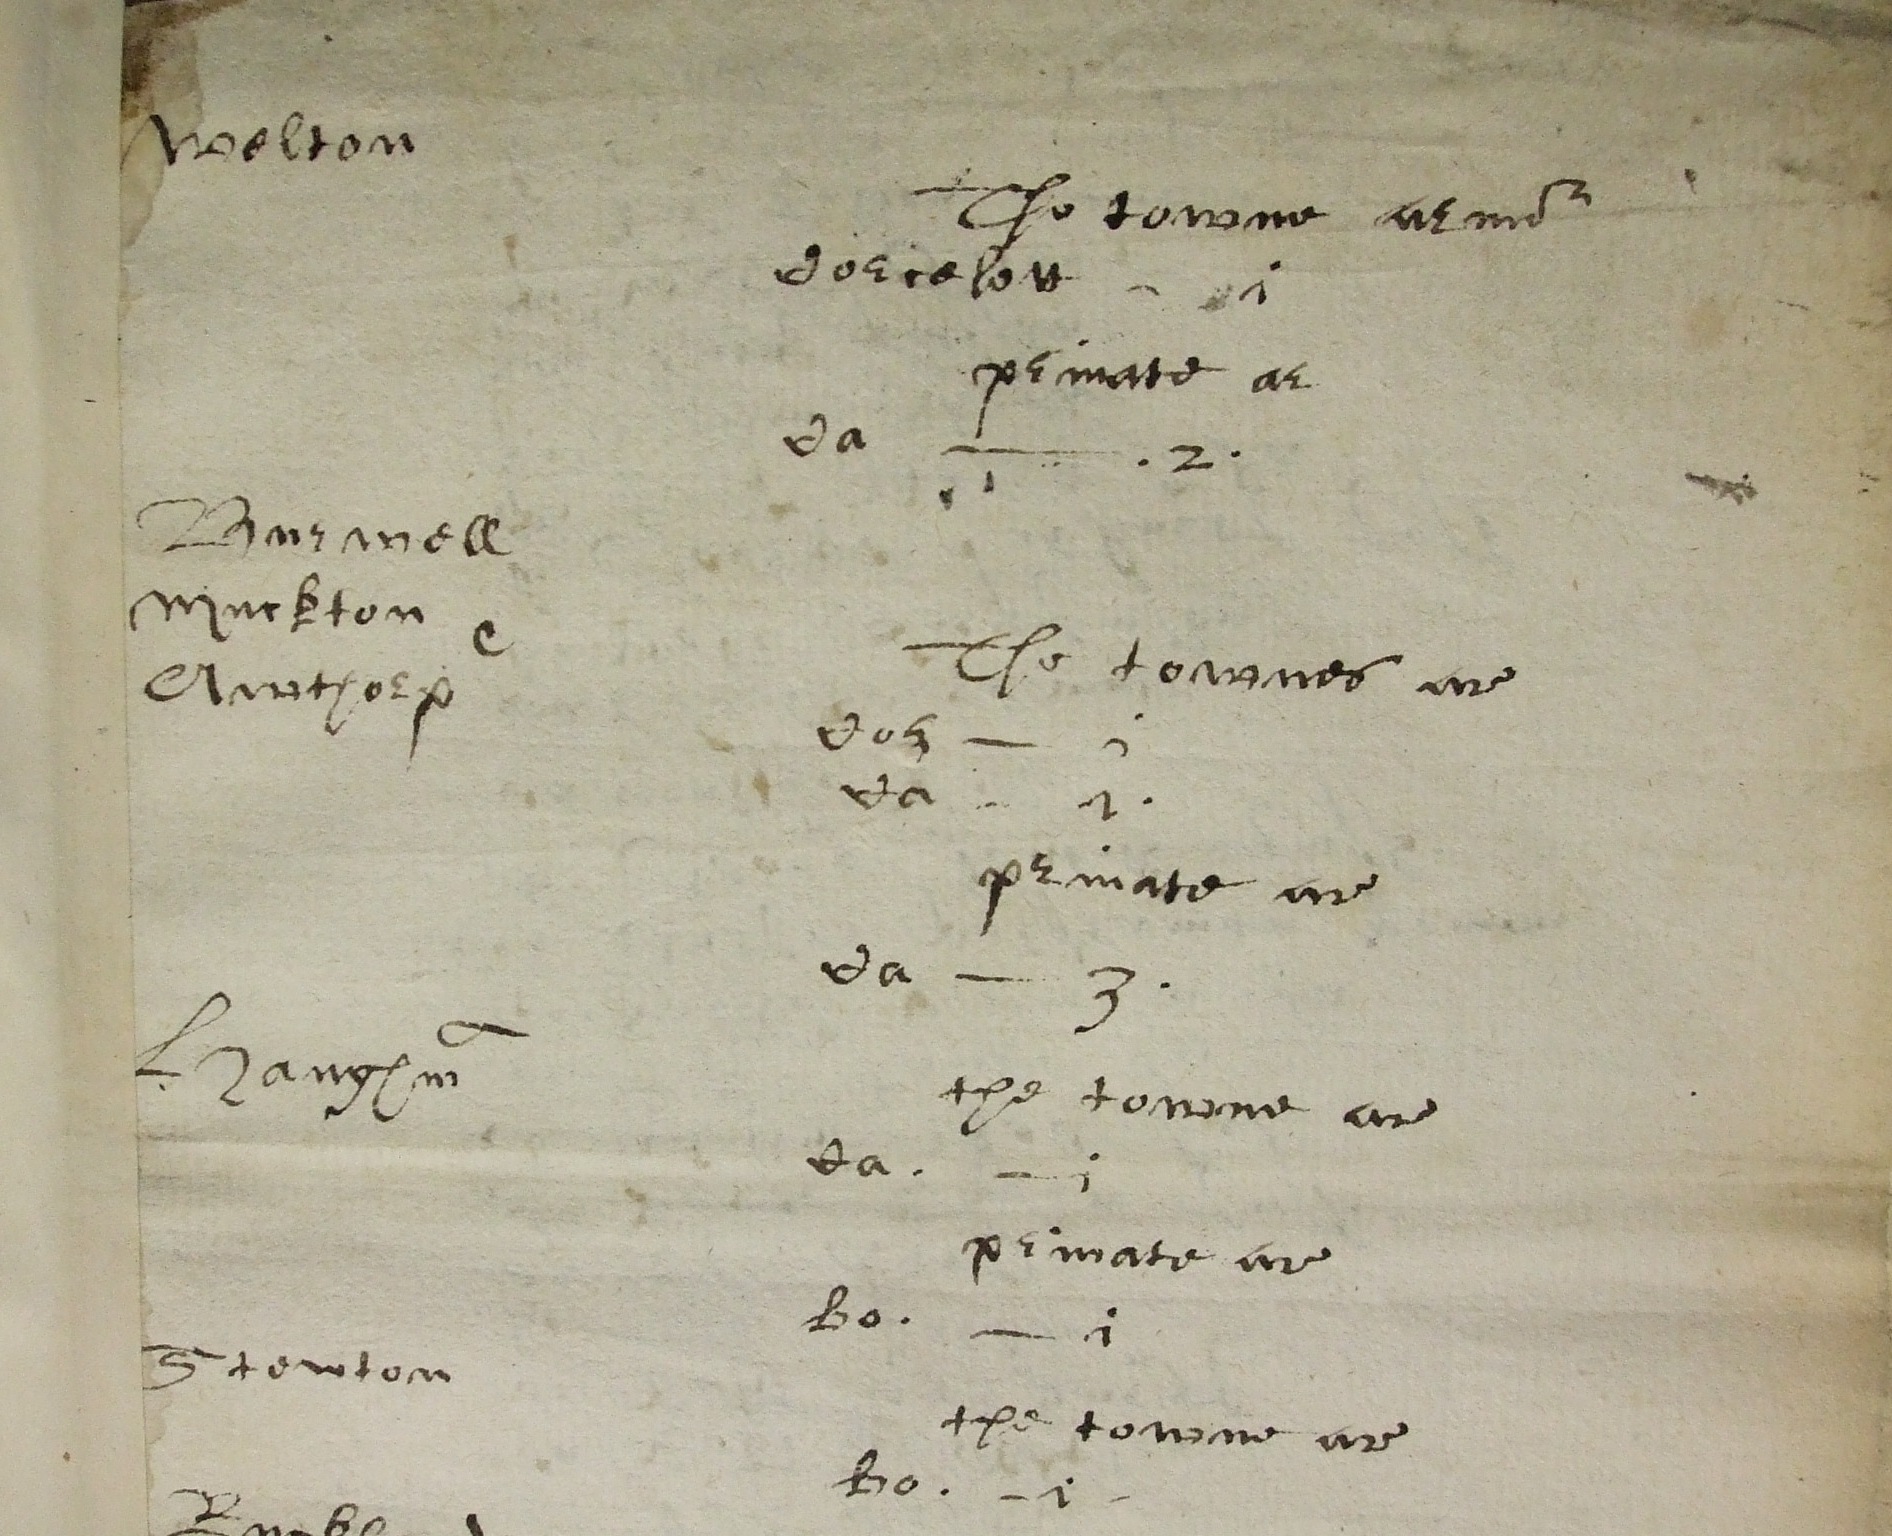 Welton
The towne armor
dorcelott - i
private ar
da — .2.
Burwell
Muckton &
Awthorp
The townes are
dor — i
da - i.
private are
da — 3.
Haughm
the towne are
da. — i
private are
bo. — i
Stewton
the towne are
bo. - i -